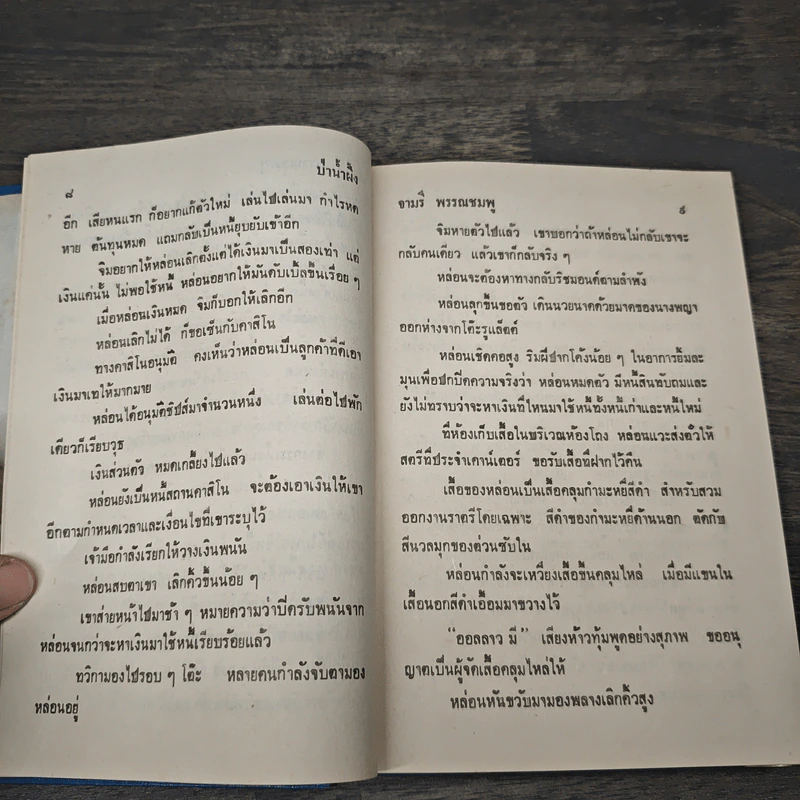 ๘
ป่าน้ำผึ้ง
อีก เสียหนแรก ก็อยากแก้ตัวใหม่ เล่นไปเล่นมา กำไรหด
หาย ต้นทุนหมด แถมกลับเป็นหนี้ยุบยับเข้าอีก
จิมอยากให้หล่อนเลิกตั้งแต่ได้เงินมาเป็นสองเท่า แต่
เงินแค่นั้น ไม่พอใช้หนี้ หล่อนอยากให้มันดับเบิ้ลขึ้นเรื่อย ๆ
เมื่อหล่อนเงินหมด จิมก็บอกให้เลิกอีก
หล่อนเลิกไม่ได้ ก็ขอเซ็นกับคาสิโน
ทางคาสิโนอนุมัติ คงเห็นว่าหล่อนเป็นลูกค้าที่ดีเอา
เงินมาเทให้มากมาย
หล่อนได้อนุมัติชิปส์มาจำนวนหนึ่ง เล่นต่อไปพัก
เดียวก็เรียบวุธ
เงินส่วนตัว หมดเกลี้ยงไปแล้ว
หล่อนยังเป็นหนี้สถานคาสิโน จะต้องเอาเงินให้เขา
อีกตามกำหนดเวลาและเงื่อนไขที่เขาระบุไว้
เจ้ามือกำลังเรียกให้วางเงินพนัน
หล่อนสบตาเขา เลิกคิ้วขึ้นน้อย ๆ
เขาส่ายหน้าไปมาช้า ๆ หมายความว่าปิดรับพนันจาก
หล่อนจนกว่าจะหาเงินมาใช้หนี้เรียบร้อยแล้ว
ทวิกามองไปรอบ ๆ โต๊ะ หลายคนกำลังจับตามอง
หล่อนอยู่
จามรี พรรณชมพู
๙
จิมหายตัวไปแล้ว เขาบอกว่าถ้าหล่อนไม่กลับเขาจะ
กลับคนเดียว แล้วเขาก็กลับจริง ๆ
หล่อนจะต้องหาทางกลับริชมอนด์ตามลำพัง
หล่อนลุกขึ้นขอตัว เดินนวยนาดด้วยมาดของนางพญา
ออกห่างจากโต๊ะรูเล็ตต์
หล่อนเชิดคอสูง ริมฝีปากโค้งน้อย ๆ ในอาการยิ้มละ
มุนเพื่อปกปิดความจริงว่า หล่อนหมดตัว มีหนี้สินทับถมและ
ยังไม่ทราบว่าจะหาเงินที่ไหนมาใช้หนี้ทั้งหนี้เก่าและหนี้ใหม่
ที่ห้องเก็บเสื้อในบริเวณห้องโถง หล่อนแวะส่งตั๋วให้
สตรีที่ประจำเคาน์เตอร์ ขอรับเสื้อที่ฝากไว้คืน
เสื้อของหล่อนเป็นเสื้อคลุมกำมะหยี่สีดำ สำหรับสวม
ออกงานราตรีโดยเฉพาะ สีดำของกำมะหยี่ด้านนอก ตัดกับ
สีนวลมุกของต่วนซับใน
หล่อนกำลังจะเหวี่ยงเสื้อขึ้นคลุมไหล่ เมื่อมีแขนใน
เสื้อนอกสีดำเอื้อมมาขวางไว้
“ออลลาว มี” เสียงห้าวทุ้มพูดอย่างสุภาพ ขออนุ
ญาตเป็นผู้จัดเสื้อคลุมไหล่ให้
หล่อนหันขวับมามองพลางเลิกคิ้วสูง